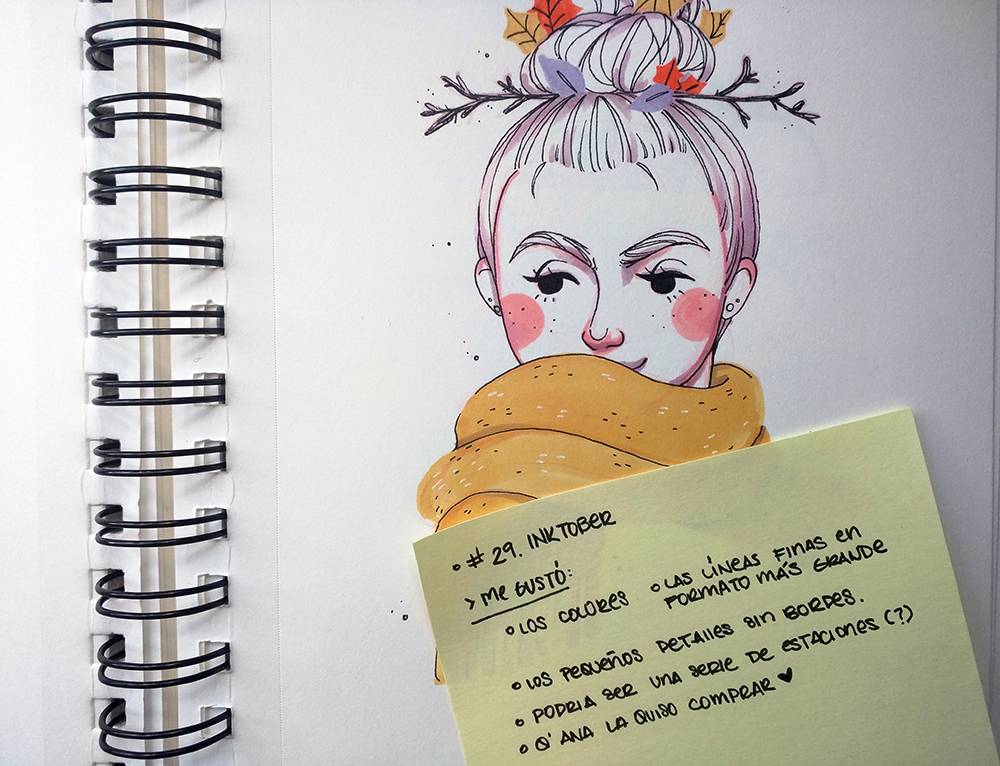 • # 29. INKTOBER
> ME GUSTÓ:
• LOS COLORES
• LAS LÍNEAS FINAS EN
FORMATO MÁS GRANDE
• LOS PEQUEÑOS DETALLES SIN BORDES.
• PODRIA SER UNA SERIE DE ESTACIONES (?)
• Q' ANA LA QUISO COMPRAR ♥